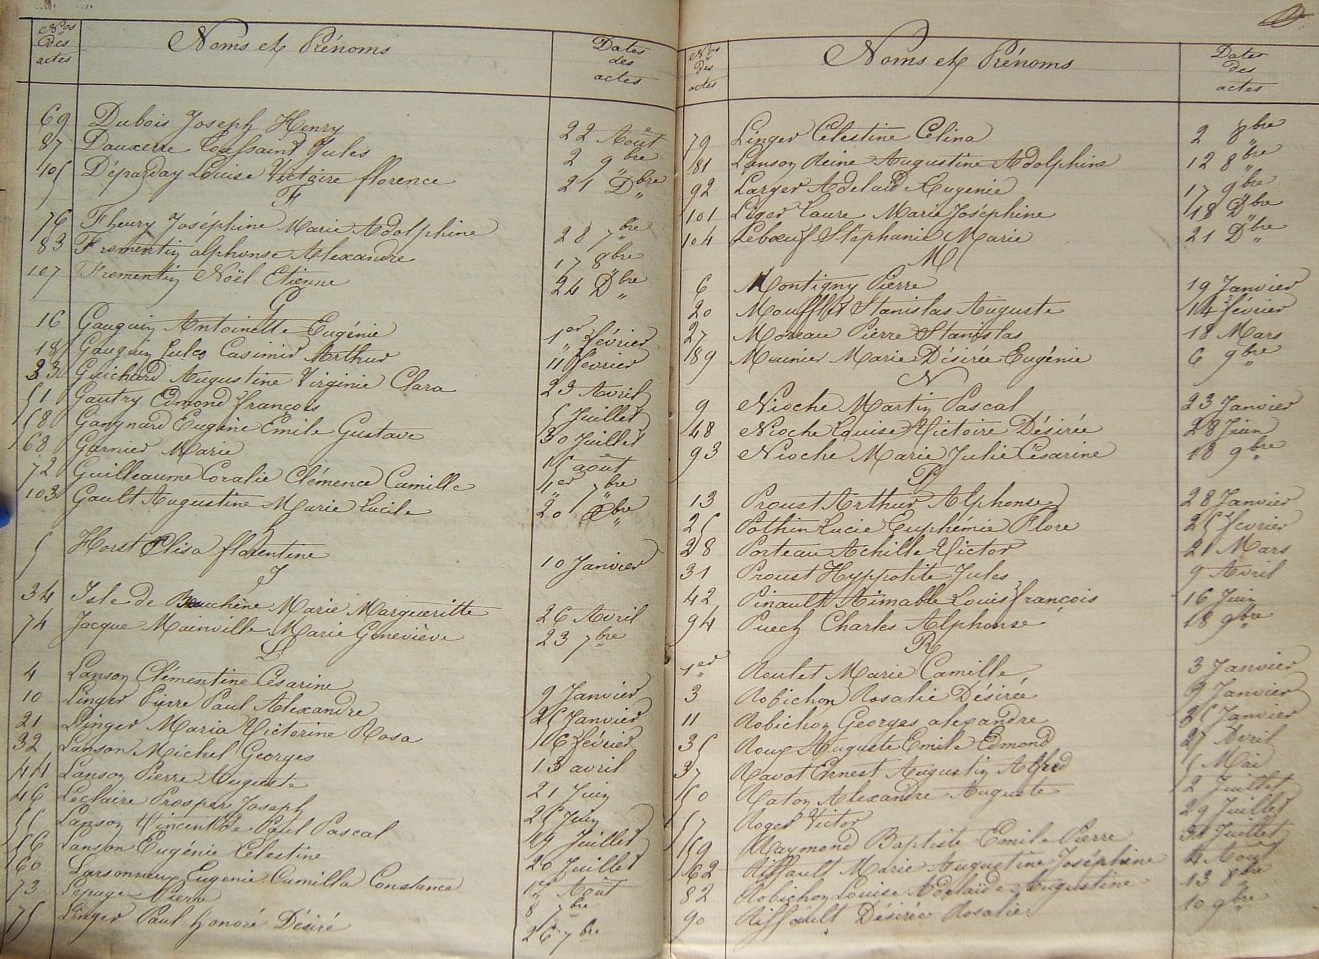 Nos des actes Noms et Prénoms Dates des actes
69 Dubois Joseph Henry 22 Août
87 Dauxerre Toussaint Jules 2 9bre
105 Déparday Louise Victoire florence 21 Dbre
F
76 Fleury Joséphine Marie Adolphine 28 7bre
83 Frementin alphonse Alexandre 17 8bre
107 Frementin Noël Etienne 24 Dbre
G
16 Gauguin Antoinette Eugénie 1er février
18 Gauguin Jules Casimir Arthur 11 février
33 Guichard Augustine Virginie Clara 23 Avril
51 Gautry Edmond françois 5 Juillet
58 Gangnard Eugène Emile Gustave 30 Juillet
68 Garnier Marie 15 août
72 Guilleaume Coralie Clémence Camille 1er 7bre
103 Gault Augustine Marie Lucile 20 Dbre
5 Horst Elisa florentine 10 Janvier
J
34 Isle de Beauchène Marie Margueritte 26 Avril
74 Jacque Mainville Marie Geneviève 23 7bre
L
4 Lanson Clémentine Césarine 9 Janvier
10 Linger Pierre Paul Alexandre 25 Janvier
21 Linger Maria Victorine Rosa 16 février
32 Lanson Michel Georges 13 avril
44 Lanson Pierre Auguste 21 Juin
46 Leclaire Prosper Joseph 25 Juin
55 Lanson Vincent de Paul Pascal 19 Juillet
56 Lanson Eugénie Célestine 20 Juillet
60 Larsonneux Eugenie Camilla Constance Août
73 Lepage Pierre 8 7bre
75 Linger Paul honoré Désiré 26 7bre
Nos des actes Noms et Prénoms Dates des actes
79 Linger Célestine Célina 2 8bre
81 Lanson Reine Augustine Adolphine 12 8bre
92 Larger Adelaide Eugenie 17 9bre
101 Liger Laure Marie Joséphine 18 Dbre
104 Lebœuf Stéphanie Marie 21 Dbre
M
6 Montigny Pierre 19 Janvier
20 Moufflet Stanislas Auguste 14 février
27 Moreau Pierre Stanislas 18 Mars
89 Meunier Marie Désirée Eugénie 6 9bre
N
9 Nioche Martin Pascal 23 Janvier
48 Nioche Louise Victoire Désirée 28 Juin
93 Nioche Marie Julie Césarine 18 9bre
P
13 Proust Arthur Alphonse 28 Janvier
25 Pothin Lucie Euphémie Flore 25 février
28 Porteau Achille Victor 21 Mars
31 Proust Hyppolite Jules 9 Avril
42 Pinault Aimable Louis françois 16 Juin
94 Puech Charles Alphonse 18 9bre
R
1er Roulet Marie Camille 3 Janvier
3 Robichon Rosalie Désirée 9 Janvier
11 Robichon Georges alexandre 25 Janvier
35 Roux Auguste Emile Edmond 27 Avril
37 Ravot Ernest Augustin Alfred 5 Mai
50 Raton Alexandre Auguste 2 Juillet
57 Roger Victor 29 Juillet
59 Raymond Baptiste Emile Pierre 30 Juillet
62 Riffault Marie Augustine Joséphine 4 Août
82 Robichon Louise Adelaide Augustine 13 8bre
90 Riffault Désirée Rosalie 10 9bre